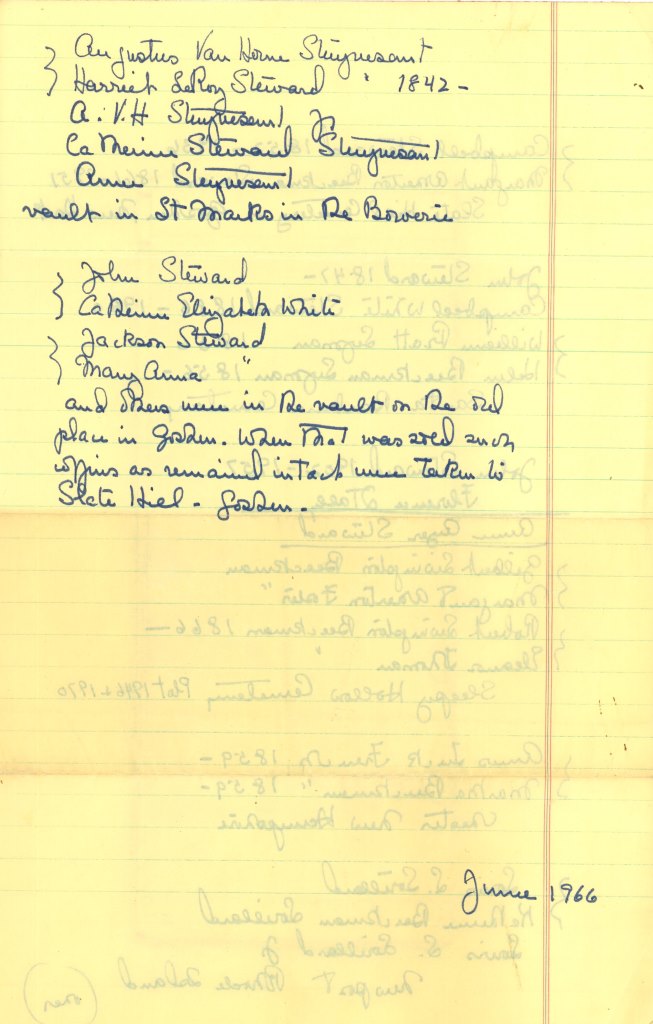 } Augustus Van Horne Stuyvesant
} Harriet LeRoy Steward " 1842 -
A. V. H Stuyvesant Jr
Catherine Steward Stuyvesant
Anne Stuyvesant
vault in St Marks in the Bowerie
} John Steward
} Catherine Elizabeth White
} Jackson Steward
} Mary Anna "
and others were in the vault on the old
place in Goshen. When that was sold such
coffins as remained intact were taken to
Slate Hill - Goshen -
June 1966